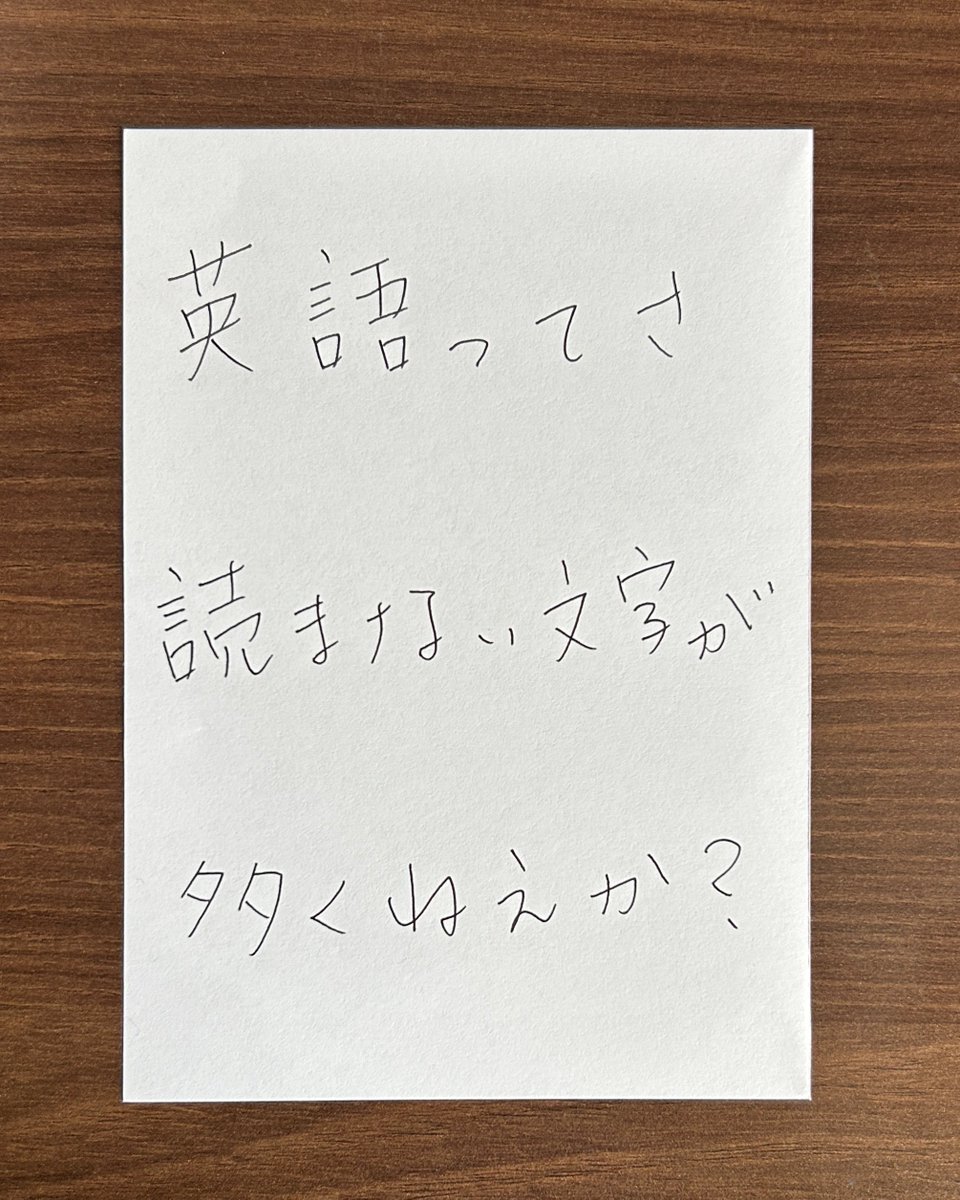 英語ってさ
読まない文字が
多くねえか?